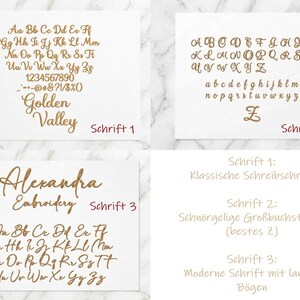 Aa Bb Cc Dd Ee Ff
Gg Hh Ii Jj Kk Ll Mm
Nn Oo Pp Qq Rr Ss Tt
Uu Vv Ww Xx Yy Zz
1234567890
Golden
Valley
Schrift 1
A B C D E F G H I
U V W X Y Z
a b c d e f g h i j k l m
n o p q r s t u v w x y z
Z
Alexandra
Embroidery
Schrift 3
Aa Bb Cc Dd Ee Ff
Gg Hh Ii Jj Kk Ll Mm
Nn Oo Pp Qq Rr Ss Tt
Uu Vv Ww Xx Yy Zz
Schrift 1:
Klassische Schreibschri
Schrift 2:
Schnörgelige Großbuchst
(bestes Z)
Schrift 3:
Moderne Schrift mit lan
Bögen